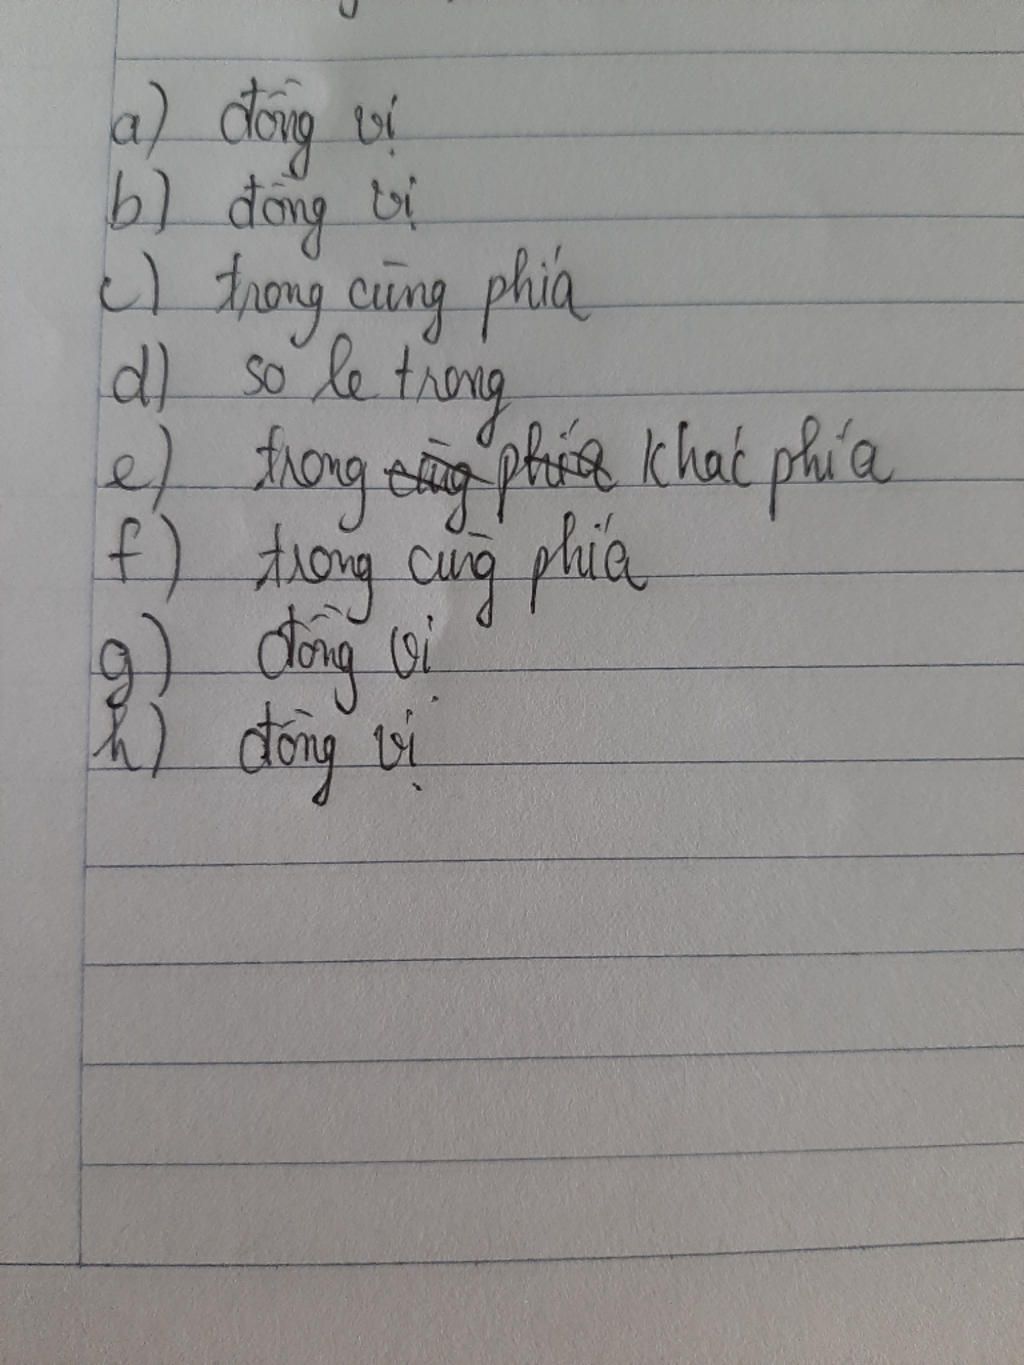 a) đồng vị
b) đồng vị
c) trong cùng phía
d) so le trong
e) trong cùng phía khác phía
f) trong cùng phía
g) đồng vị
h) đồng vị